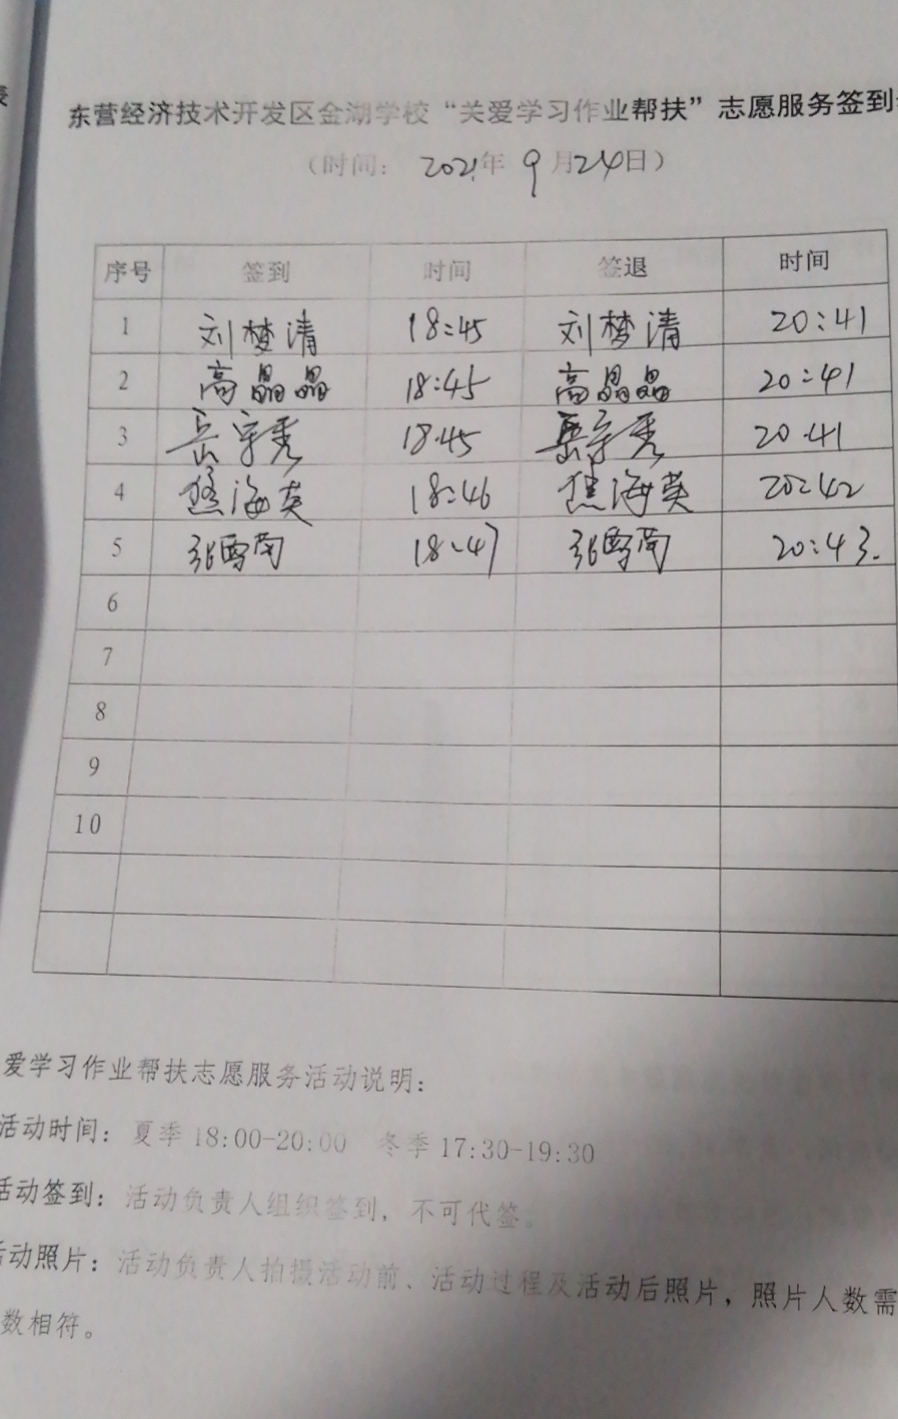 东营经济技术开发区金湖学校“关爱学习作业帮扶”志愿服务签到
（时间： 2021年 9月24日）
序号 签到 时间 签退 时间
1 刘梦清 18:45 刘梦清 20:41
2 高晶晶 18:45 高晶晶 20:41
3 岳宇秀 18:45 岳宇秀 20:41
4 焦海英 18:46 焦海英 20:42
5 张雪南 18:47 张雪南 20:43.
6
7
8
9
10
爱学习作业帮扶志愿服务活动说明：
活动时间：夏季 18:00-20:00 冬季 17:30-19:30
活动签到：活动负责人组织签到，不可代签。
活动照片：活动负责人拍摄活动前、活动过程及活动后照片，照片人数需
数相符。